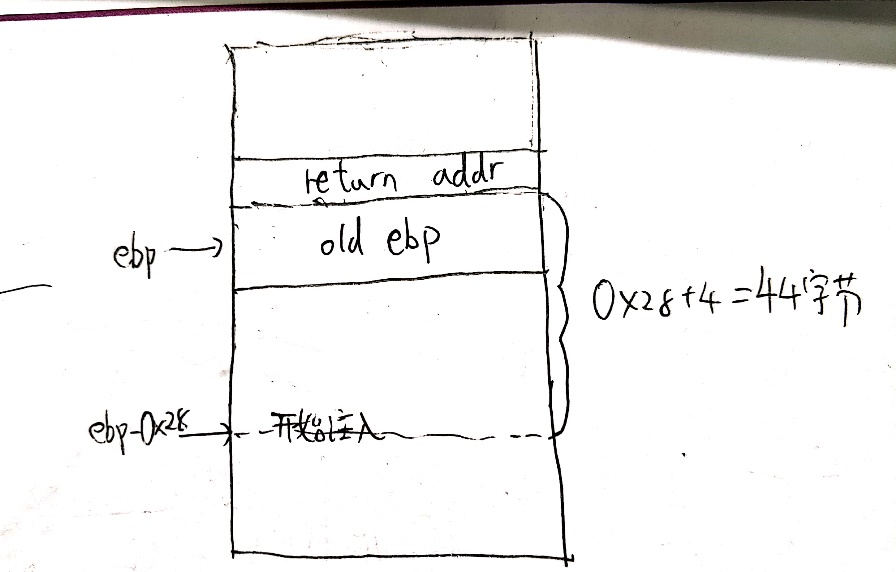 return addr
ebp
old ebp
0x28+4=44字节
ebp-0x28
开始注入